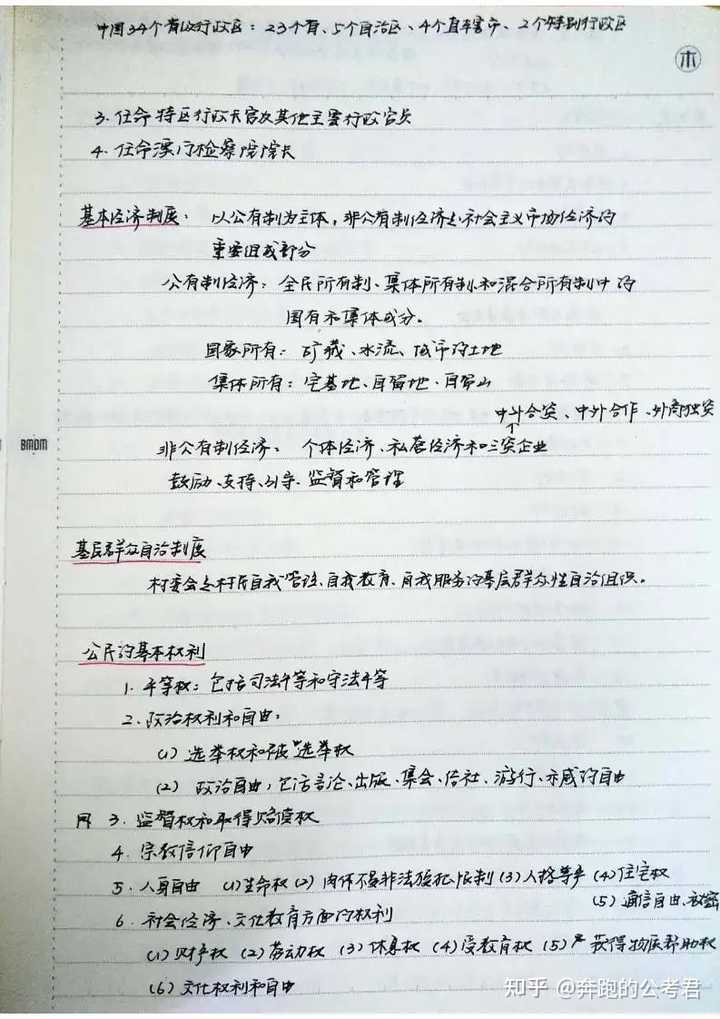 中国34个省级行政区：23个省、5个自治区、4个直辖市、2个特别行政区
木
3. 任命特区行政长官及其他主要行政官员
4. 任命澳门检察院院长
基本经济制度： 以公有制为主体，非公有制经济是社会主义市场经济的
重要组成部分
公有制经济：全民所有制、集体所有制和混合所有制中的
国有和集体成分。
国家所有：矿藏、水流、城市的土地
集体所有：宅基地、自留地、自留山
中外合资、中外合作、外商独资
↑
BMDM
非公有制经济： 个体经济、私营经济和三资企业
鼓励、支持、引导、监督和管理
基层群众自治制度
村委会是村民自我管理、自我教育、自我服务的基层群众性自治组织。
公民的基本权利
1. 平等权：包括司法平等和守法平等
2. 政治权利和自由：
(1) 选举权和被选举权
(2) 政治自由，包括言论、出版、集会、结社、游行、示威的自由
3. 监督权和取得赔偿权
4. 宗教信仰自由
5. 人身自由 (1)生命权 (2) 肉体不受非法 限制 (3)人格尊严 (4)住宅权
(5) 通信自由、秘密
6. 社会经济、文化教育方面的权利
(1)财产权 (2)劳动权 (3)休息权 (4)受教育权 (5) 获得物质帮助权
(6) 文化权利和自由
知乎 @奔跑的公考君